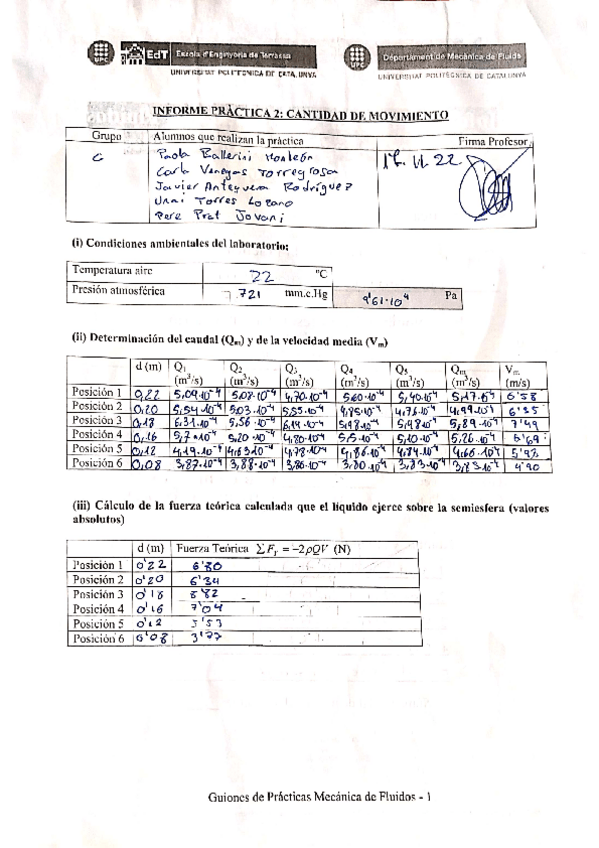 UPC EdT Escola d'Enginyeria de Terrassa
UNIVERSITAT POLITÈCNICA DE CATALUNYA
UPC Departament de Mecànica de Fluids
UNIVERSITAT POLITÈCNICA DE CATALUNYA
INFORME PRÀCTICA 2: CANTIDAD DE MOVIMIENTO
Grupo Alumnos que realizan la práctica Firma Profesor
G Paola Ballerini Monleón 17.11.22
Carla Venegas Torregrosa
Javier Antequera Rodríguez
Unai Torres Lozano
Pere Prat Jovani
(i) Condiciones ambientales del laboratorio:
Temperatura aire 22 °C
Presión atmosférica 721 mm.c.Hg 9'61·10⁴ Pa
(ii) Determinación del caudal (Qm) y de la velocidad media (Vm)
d (m) Q1 (m³/s) Q2 (m³/s) Q3 (m³/s) Q4 (m³/s) Q5 (m³/s) Qm (m³/s) Vm (m/s)
Posición 1 0,22 5,09·10⁻⁴ 5,08·10⁻⁴ 4,70·10⁻⁴ 5,60·10⁻⁴ 5,40·10⁻⁴ 5,17·10⁻⁴ 6'58
Posición 2 0,20 5,54·10⁻⁴ 5,03·10⁻⁴ 5,55·10⁻⁴ 4,85·10⁻⁴ 4,76·10⁻⁴ 4,99·10⁻⁴ 6'35
Posición 3 0,18 6,31·10⁻⁴ 5,56·10⁻⁴ 6,14·10⁻⁴ 5,98·10⁻⁴ 5,48·10⁻⁴ 5,89·10⁻⁴ 7'49
Posición 4 0,16 5,7·10⁻⁴ 5,20·10⁻⁴ 4,80·10⁻⁴ 5,5·10⁻⁴ 5,10·10⁻⁴ 5,26·10⁻⁴ 6'69
Posición 5 0,12 4,19·10⁻⁴ 4,63·10⁻⁴ 4,78·10⁻⁴ 4,86·10⁻⁴ 4,84·10⁻⁴ 4,66·10⁻⁴ 5'93
Posición 6 0,08 3,87·10⁻⁴ 3,88·10⁻⁴ 3,86·10⁻⁴ 3,80·10⁻⁴ 3,83·10⁻⁴ 3,85·10⁻⁴ 4'90
(iii) Cálculo de la fuerza teórica calculada que el líquido ejerce sobre la semiesfera (valores
absolutos)
d (m) Fuerza Teórica ∑F_T = −2ρQV (N)
Posición 1 0'22 6'80
Posición 2 0'20 6'34
Posición 3 0'18 8'82
Posición 4 0'16 7'04
Posición 5 0'12 5'53
Posición 6 0'08 3'77
Guiones de Prácticas Mecánica de Fluidos - 1